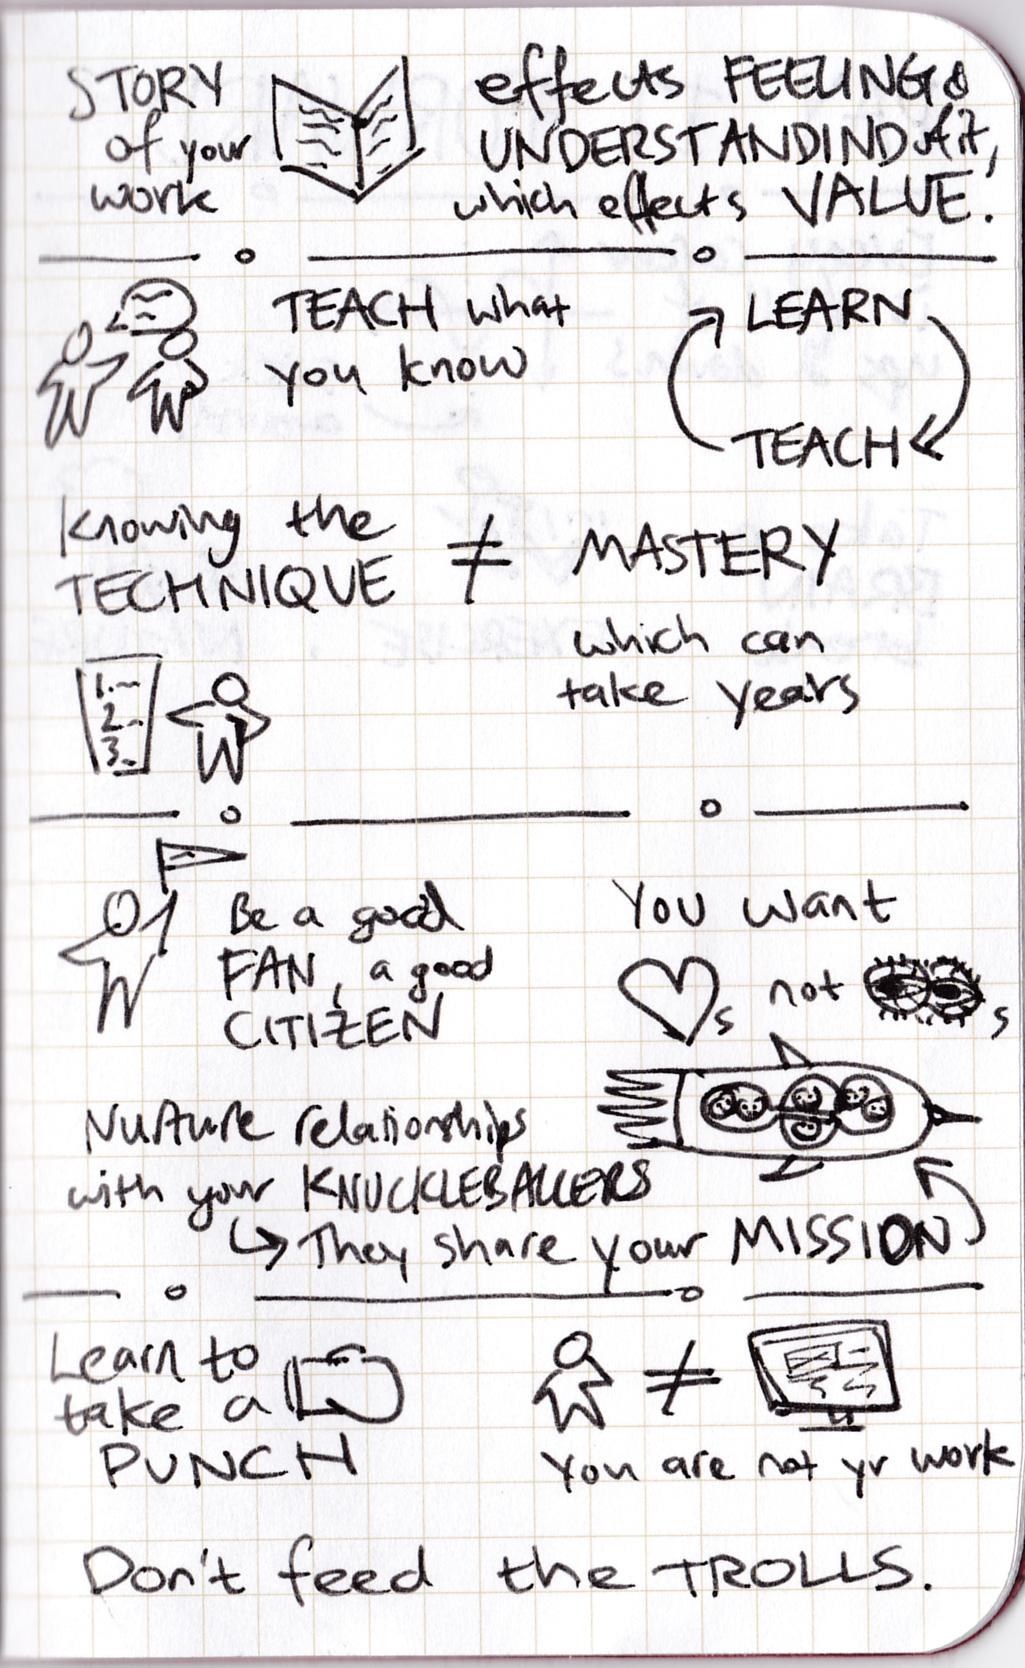 STORY
of your
work
effects FEELING &
UNDERSTANDIND of it,
which effects VALUE.
TEACH what
you know
LEARN
TEACH
Knowing the
TECHNIQUE
≠
MASTERY
which can
take years
1.
2.
3.
Be a good
FAN, a good
CITIZEN
You want
s not s
Nurture relationships
with your KNUCKLEBALLERS
They share your MISSION
Learn to
take a
PUNCH
≠
You are not yr work
Don't feed the TROLLS.